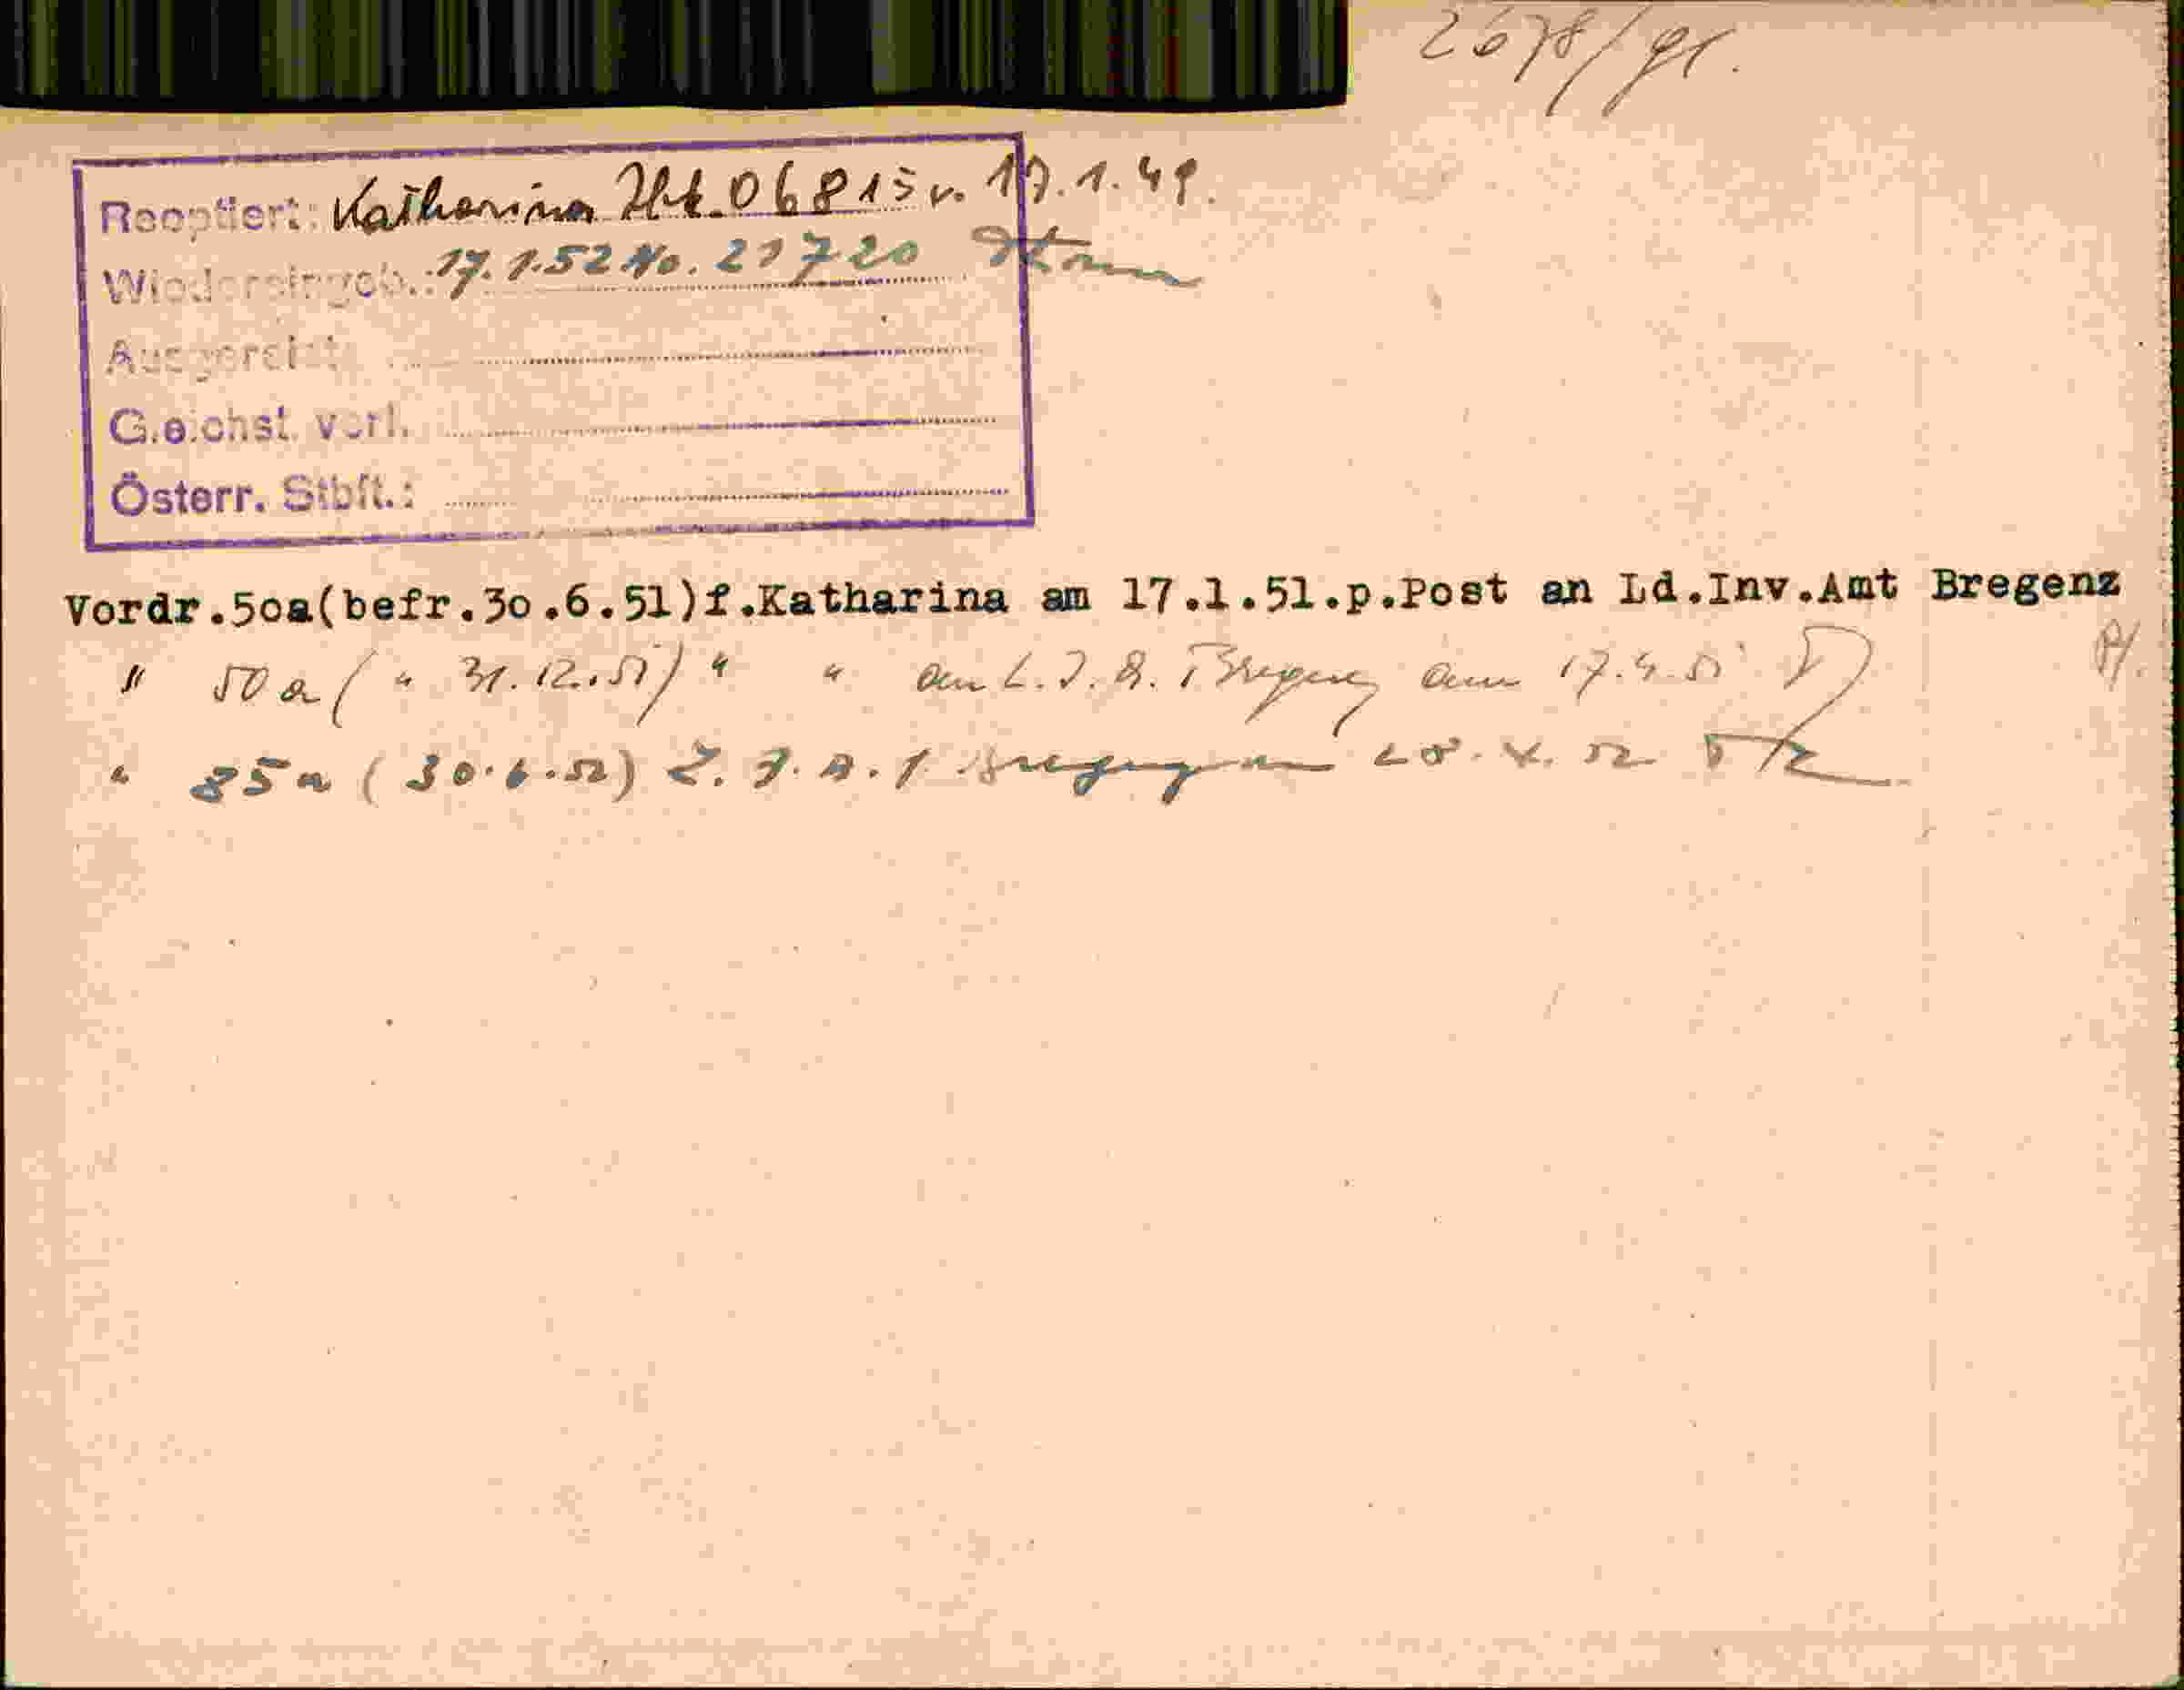 2678/gr.
Reoptiert: Katharina Zhl. 06815 v. 17.1.49.
Wiedereingeb.: 17.1.52 No. 21720
Ausgereist:
Gleichst. verl.
Österr. Stbft.:
Vordr.50a(befr.30.6.51)f.Katharina am 17.1.51.p.Post an Ld.Inv.Amt Bregenz
" 50a ( " 31.12.51) " " an L.I.A. Bregenz am 17.4.51
" 85a (30.6.52) L.I.A. Bregenz 52